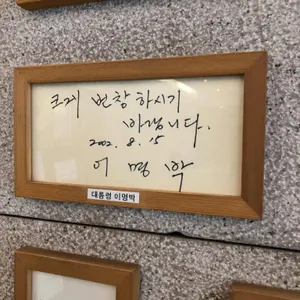 크게 번창하시기
바랍니다.
2002. 8. 15
이명박
대통령 이명박